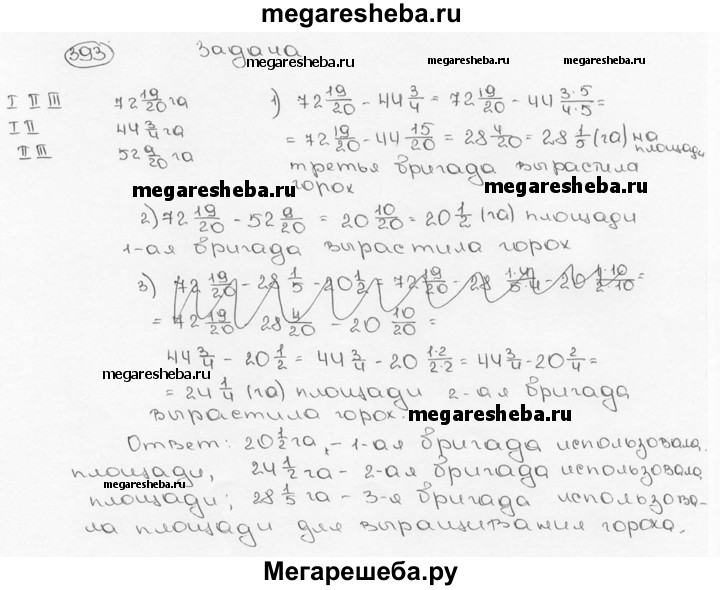 megaresheba.ru
393 Задача
megaresheba.ru megaresheba.ru
I II III 72 19/20 га 1) 72 19/20 - 44 3/4 = 72 19/20 - 44 3·5/4·5 =
I II 44 3/4 га = 72 19/20 - 44 15/20 = 28 4/20 = 28 1/5 (га) на площади
II III 52 9/20 га третья бригада вырастила
megaresheba.ru горох megaresheba.ru
2) 72 19/20 - 52 9/20 = 20 10/20 = 20 1/2 (га) площади
1-ая бригада вырастила горох
3) 72 19/20 - 28 1/5 - 20 1/2 = 72 19/20 - 28 1·4/5·4 - 20 1·10/2·10 =
= 72 19/20 28 4/20 - 20 10/20 =
44 3/4 - 20 1/2 = 44 3/4 - 20 1·2/2·2 = 44 3/4 - 20 2/4 =
megaresheba.ru
= 24 1/4 (га) площади 2-ая бригада
вырастила горох. megaresheba.ru
Ответ: 20 1/2 га, - 1-ая бригада использовала
площади, 24 1/2 га - 2-ая бригада использовала
megaresheba.ru
площади; 28 1/5 га - 3-я бригада использова-
ла площади для выращивания гороха.
Мегарешеба.ру